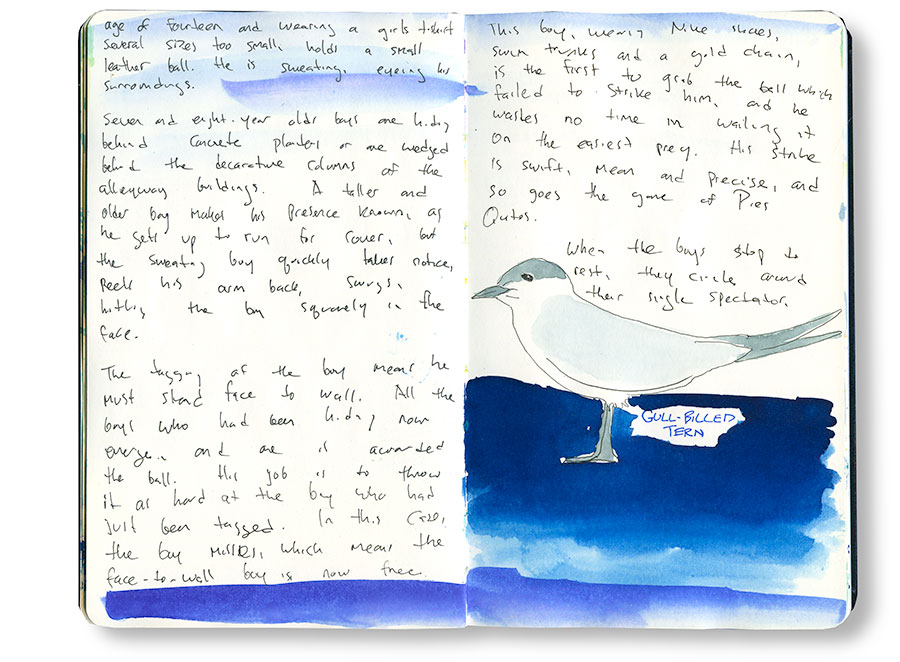 age of fourteen and wearing a girls t-shirt
several sizes too small, holds a small
leather ball. He is sweating, eyeing his
surroundings.
Seven and eight-year older boys are hiding
behind concrete planters or are wedged
behind the decorative columns of the
alleyway buildings. A taller and
older boy makes his presence known, as
he gets up to run for cover, but
the sweating boy quickly takes notice,
reels his arm back, swings,
hitting the boy squarely in the
face.
The tagging of the boy means he
must stand face to wall. All the
boys who had been hiding now
emerge, and one is awarded
the ball. His job is to throw
it as hard at the boy who had
just been tagged. In this case,
the boy misses, which means the
face-to-wall boy is now free.
This boy, wearing Nike shoes,
swim trunks and a gold chain,
is the first to grab the ball which
failed to strike him, and he
wastes no time in wailing it
on the easiest prey. His strike
is swift, mean and precise, and
so goes the game of Pies
Qutos.
When the boys stop to
rest, they circle around
their single spectator,
GULL-BILLED
TERN